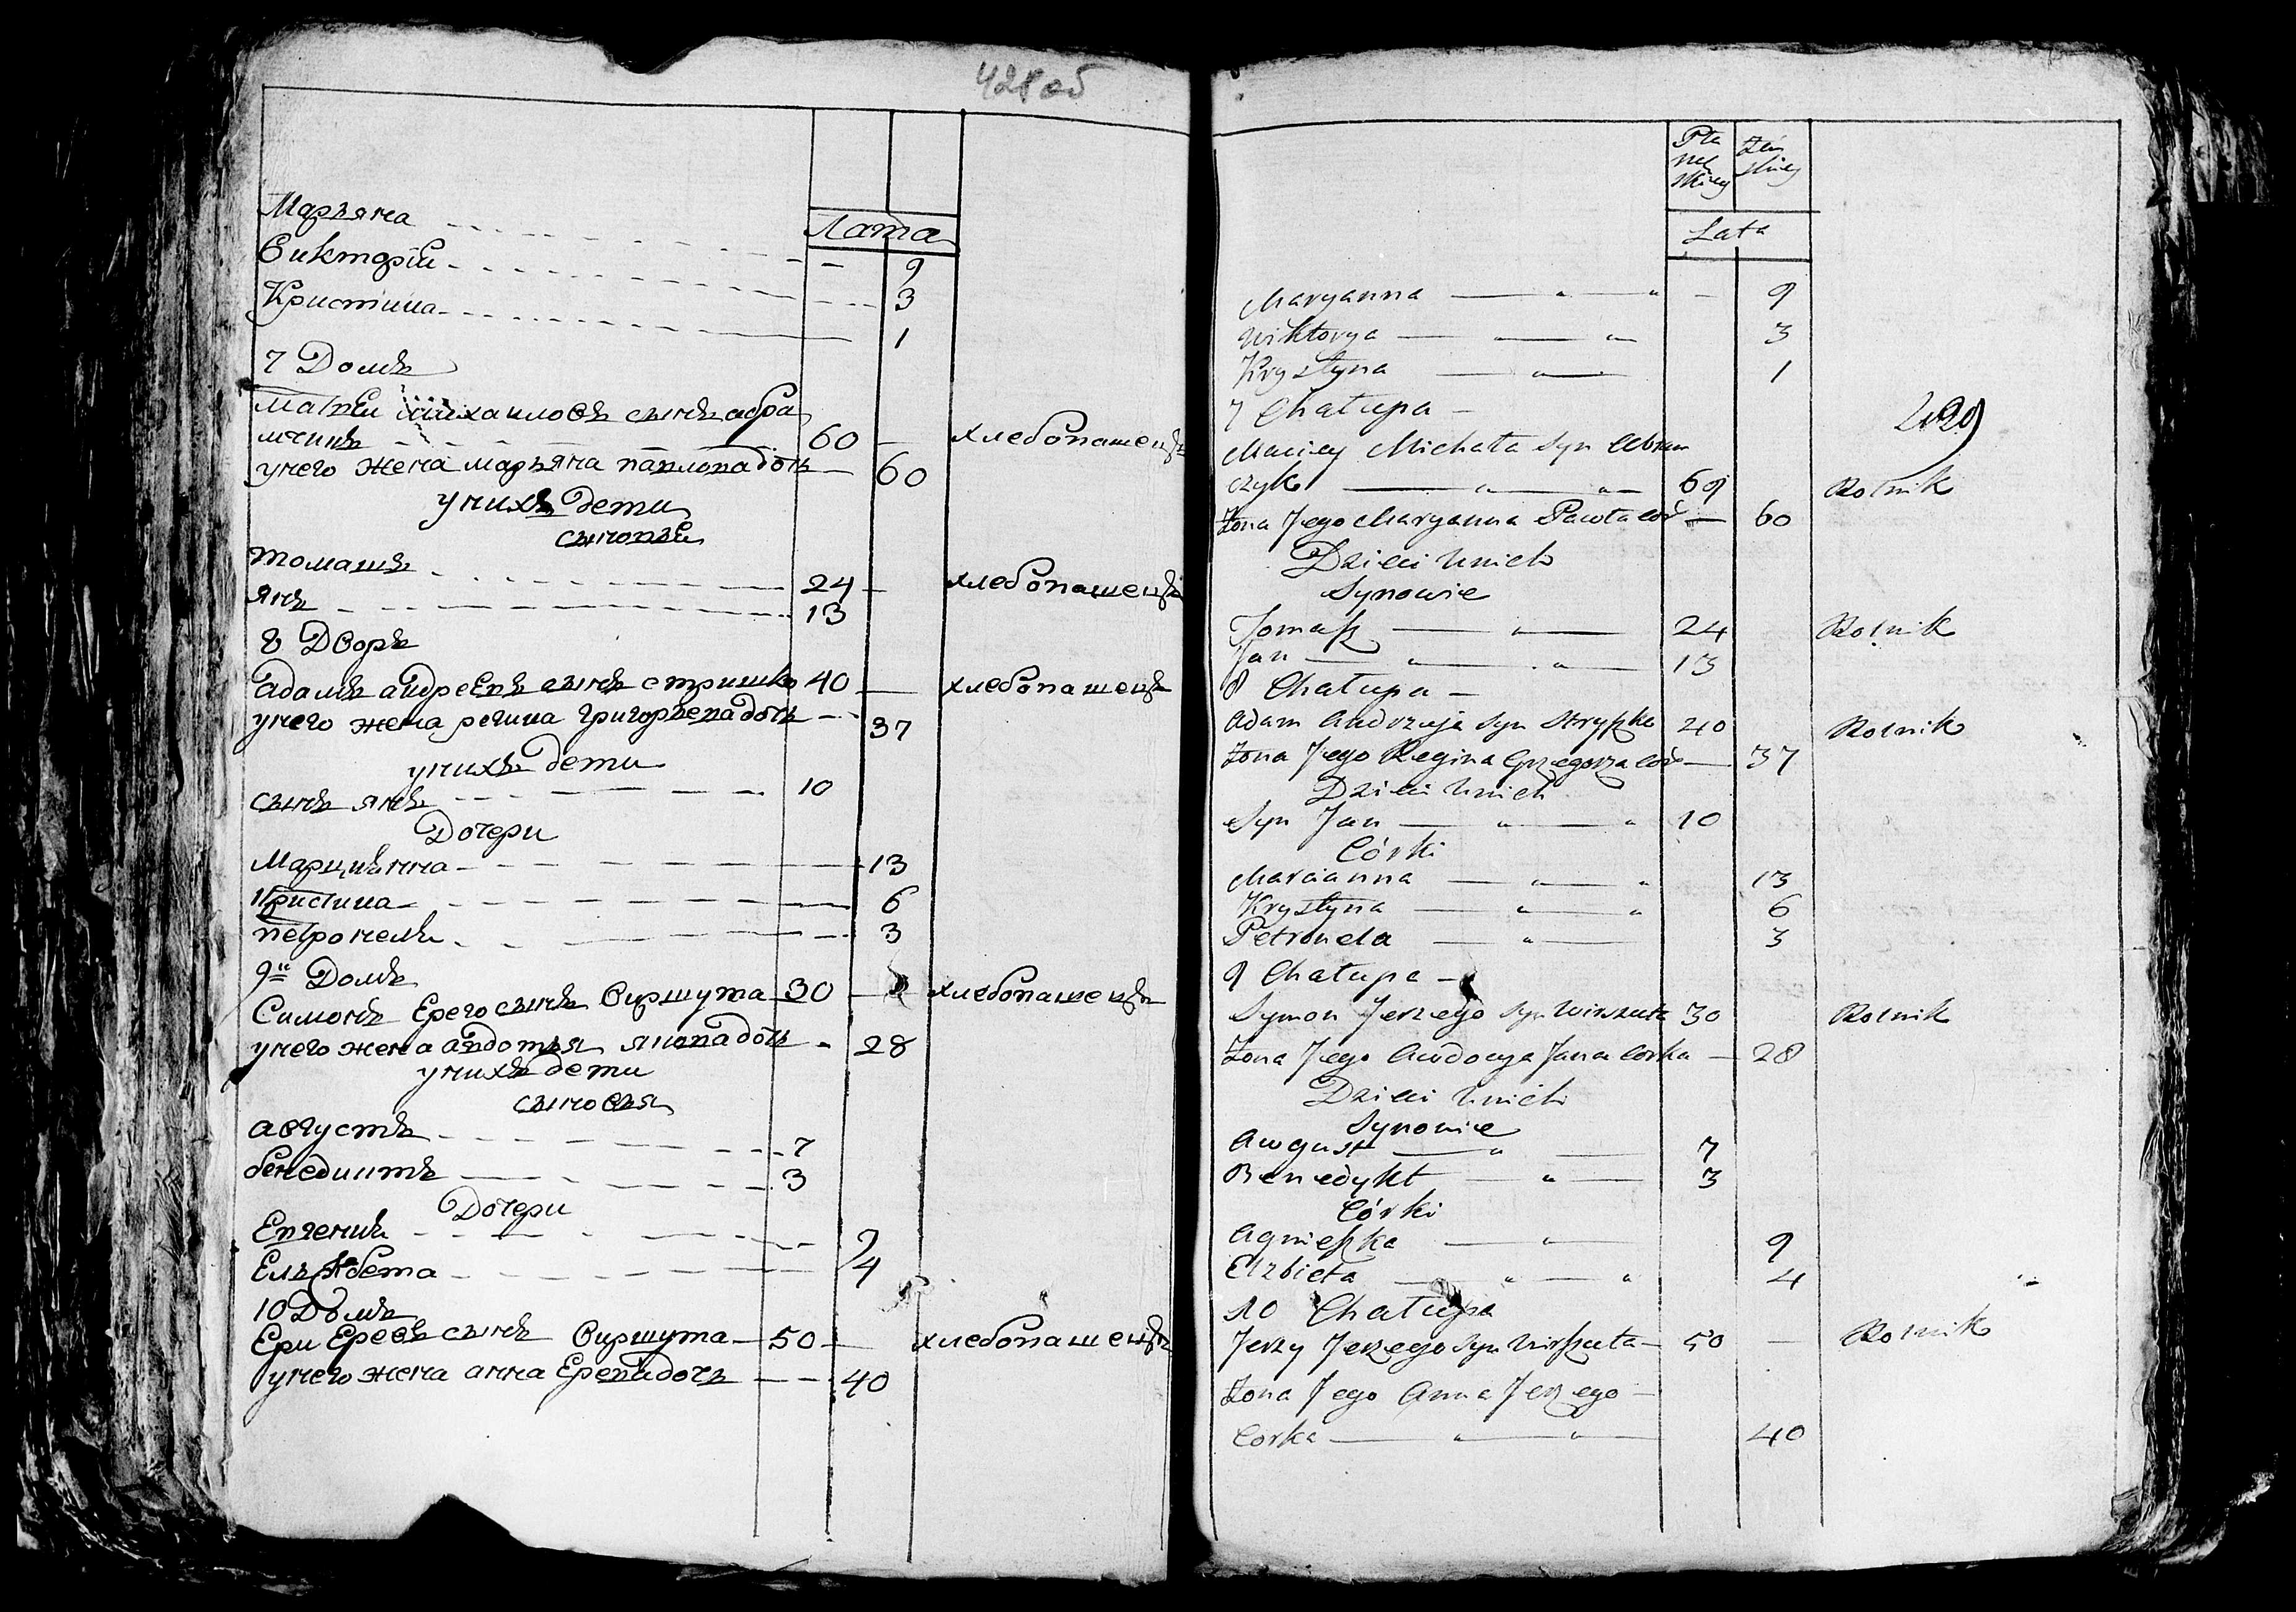 428 об
Лата
Марьяна 9
Викторiи 3
Кристина 1
7 Домъ
Матвеи михаиловъ сынъ абра
мчикъ 60 — хлебопашецъ
унего жена марьяна павловадочь — 60
унихъ дети
сыновьи
томашъ 24 — хлебопашецъ
янъ 13
8 Дворъ
адамъ андреевъ сынъ стришко 40 — хлебопашецъ
унего жена регина григорьевадочь 37
унихъ дети
сынъ янъ 10
Дочери
Марцианна 13
Кристина 6
петронеля 3
9й Домъ
Симонъ Ерего сынъ Виршута 30 — хлебопашецъ
унего жена авдотья яновадочь 28
унихъ дети
сыновья
августъ 7
бенедиктъ 3
Дочери
Евгения 9
Ельжбета 4
10 Домъ
Ери Еревъ сынъ Виршута — 50 — хлебопашецъ
унего жена анна Еревадочь — 40
Lata
Maryanna — " " — 9
Wiktorya — — " 3
Krystyna — " — 1
7 Chałupa —
429
Maciey Michała Syn Abram
czyk — " " — 60 Rolnik
Żona Jego Maryanna Pawła cór — 60
Dzieci Unich
Synowie
Tomasz — " — 24 Rolnik
Jan — " " — 13
8 Chałupa —
Adam Andrzeja Syn Stryszko 40 Rolnik
Żona Jego Regina Grzegorza cór — 37
Dzieci Unich
Syn Jan — " " 10
Córki
Marcianna — " " 13
Krystyna — " " 6
Petronela — " — 3
9 Chałupa —
Symon Jerzego Syn Wirszuta 30 Rolnik
Żona Jego Audocya Jana Corka — 28
Dzieci Unich
Synowie
August — " — 7
Benedykt — " — 3
Córki
Agnieszka — " — 9
Elzbieta — " — " 4
10 Chałupa
Jerzy Jerzego Syn Wirszuta — 50 — Rolnik
Żona Jego Anna Jerzego —
Corka — " " — 40